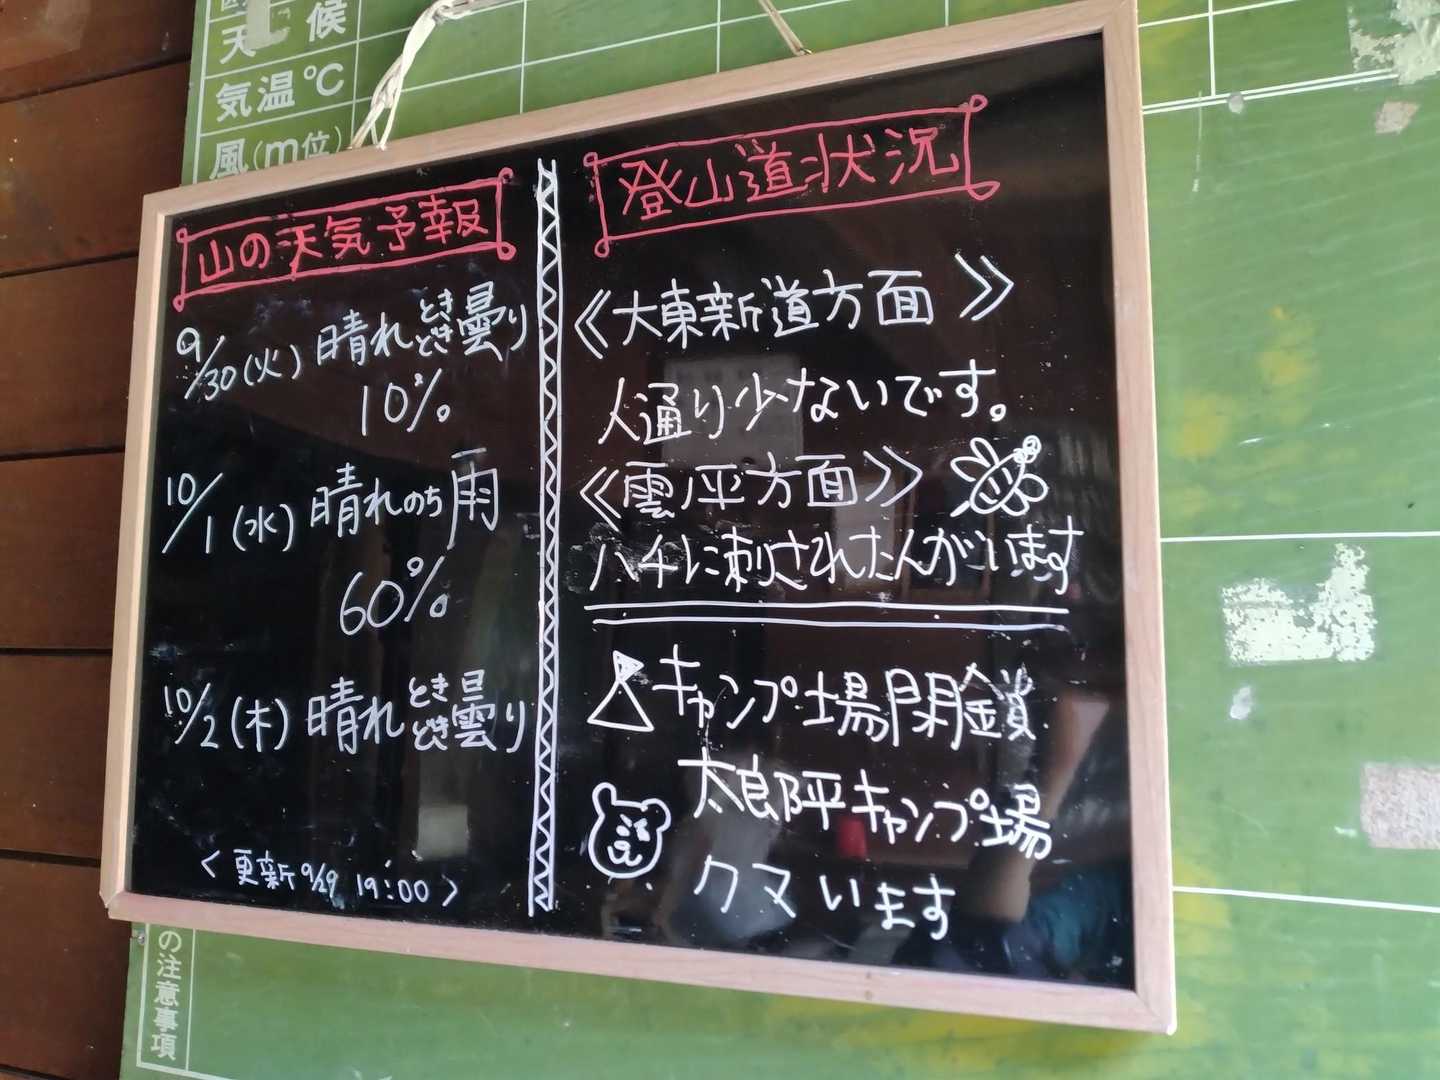 天候
気温℃
風(m位)
山の天気予報
9/30(火) 晴れときどき曇り
10%
10/1(水) 晴れのち雨
60%
10/2(木) 晴れときどき曇り
<更新 9/29 19:00>
登山道状況
《大東新道方面》
人通り少ないです。
《雲ノ平方面》
ハチに刺されたんがいます
キャンプ場閉鎖
太郎平キャンプ場
クマいます
の注意事項